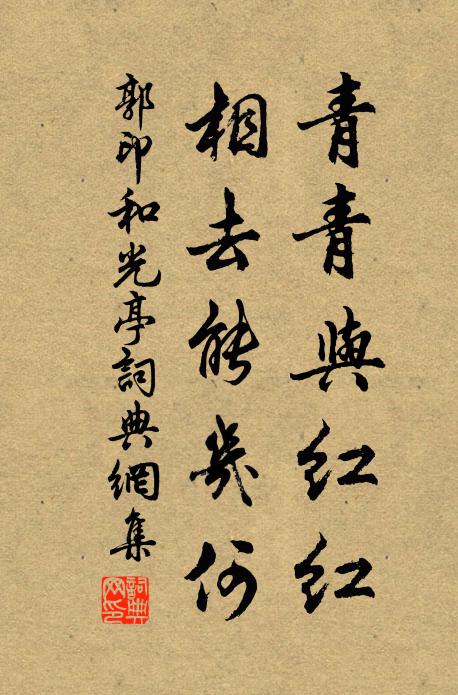 青青與紅紅
相去能幾何
郭印和光亭詞典網集
詞典
網印